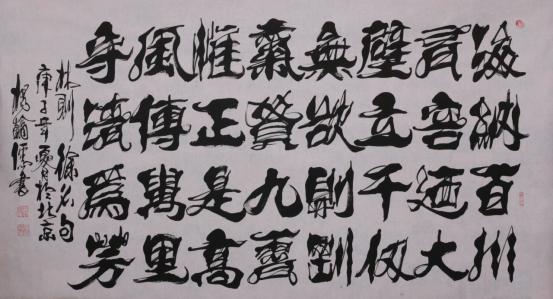 海納百川
有容迺大
壁立千仞
無欲則剛
九霄
惟正是高
風傳萬里
守清為芳
林則徐名句
庚子年夏月於北京
楊儒書